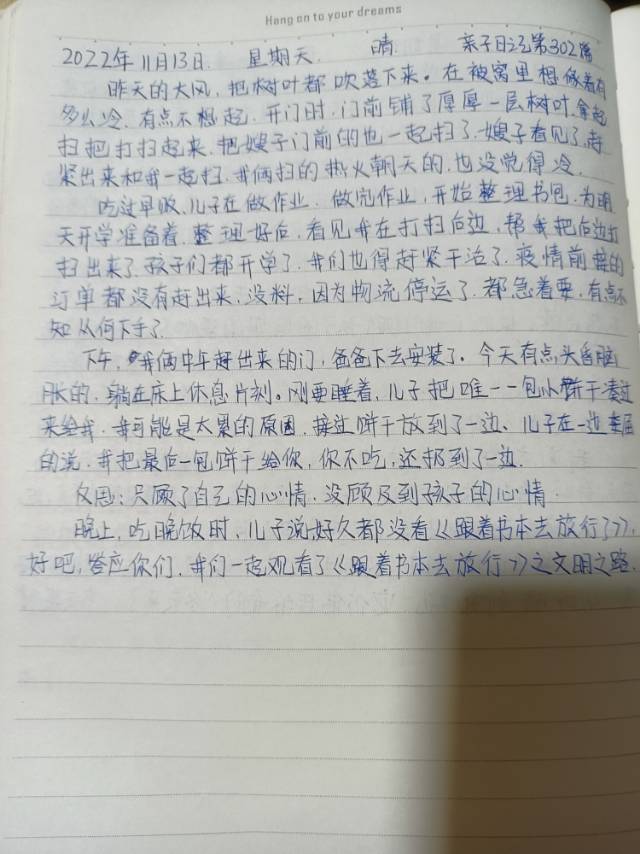 Hang on to your dreams
2022年11月13日 星期天 晴 亲子日记第302篇
昨天的大风,把树叶都吹落下来。在被窝里想像着有
多么冷,有点不想起,开门时,门前铺了厚厚一层树叶,拿起
扫把打扫起来,把嫂子门前的也一起扫了,嫂子看见了,赶
紧出来和我一起扫,我俩扫的热火朝天的,也没觉得冷。
吃过早饭,儿子在做作业,做完作业,开始整理书包,为明
天开学准备着,整理好后,看见我在打扫后边,帮我把后边打
扫出来了,孩子们都开学了,我们也得赶紧干活了,疫情前接的
订单都没有赶出来,没料,因为物流停运了,都急着要,有点不
知从何下手了
下午,我俩中午赶出来的门,爸爸下去安装了。今天有点头昏脑
胀的,躺在床上休息片刻。刚要睡着,儿子把唯一一包小饼干凑过
来给我,我可能是太累的原因,接过饼干放到了一边、儿子在一边
的说,我把最后一包饼干给你,你不吃,还扔到了一边.
反思:只顾了自己的心情,没顾及到孩子的心情.
晚上,吃晚饭时,儿子说,好久都没看《跟着书本去放行了》,
好吧,答应你们,我们一起观看了《跟着书本去放行》之文明之路.